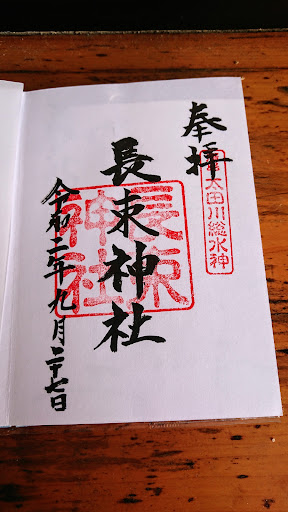 奉拝
太田川総水神
長束神社
長束
神社
令和二年九月二十七日